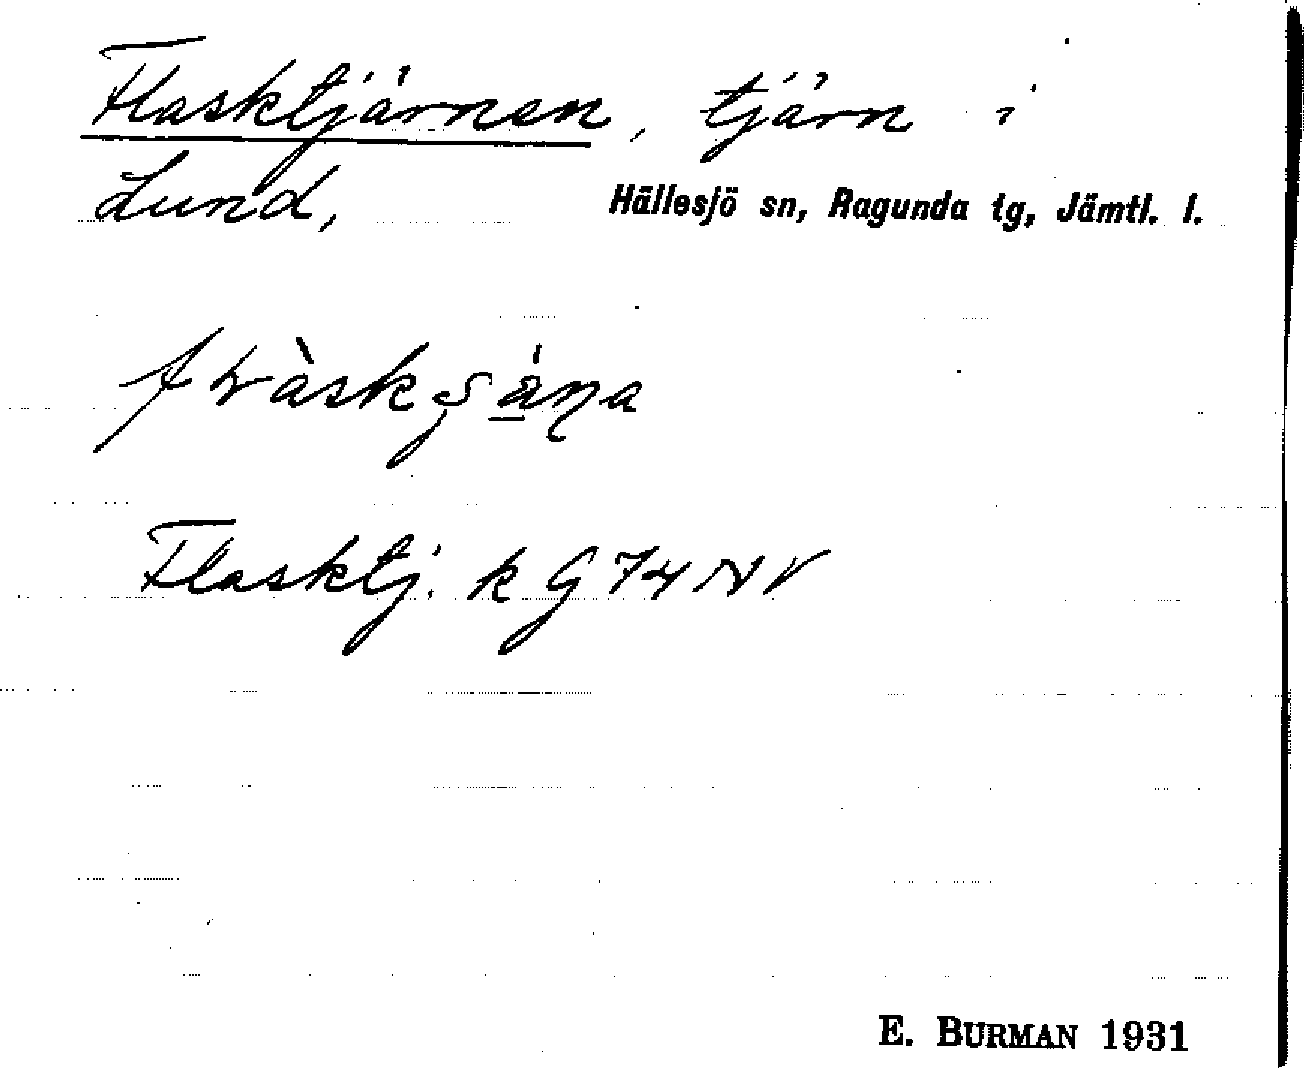 Flasktjärnen, tjärn i
Lund, Hällesjö sn, Ragunda tg, Jämtl. l.
Flasktj. k G 74 NV
E. BURMAN 1931